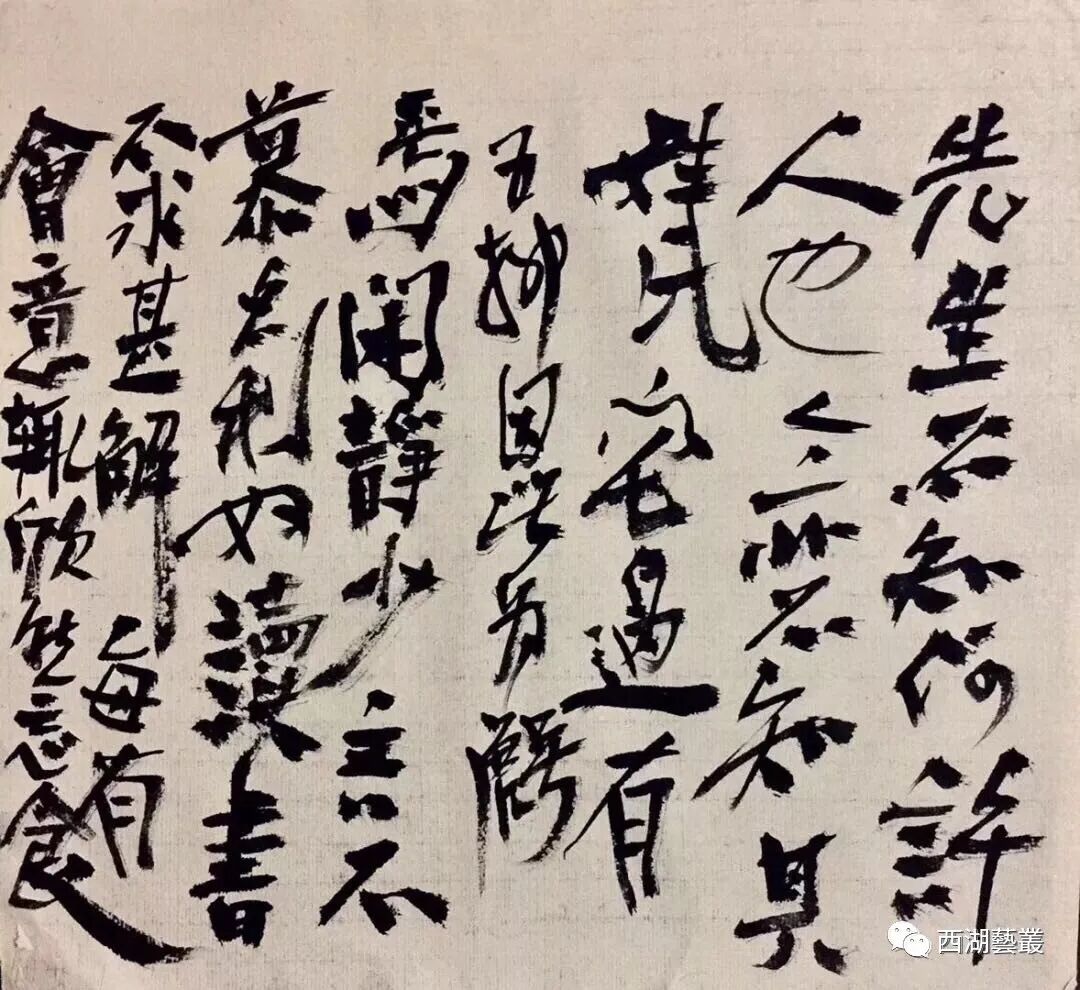 先生不知何許
人也亦不知其
姓氏宅邊有
五柳因以為號
焉閑靜少言不
慕名利好讀書
不求甚解每有
會意輒欣然忘食
西湖藝叢